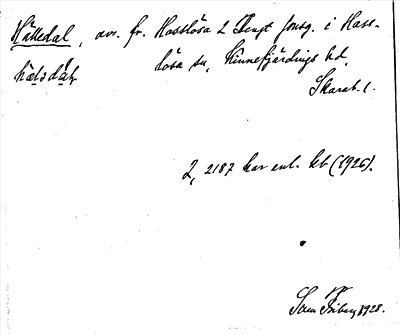 Källedal, avs. fr. Hasslösa 2 Bengt Jonsg. i Hass-
lösa sn, Kinnefjärdings hd,
Skarab. l.
2,2187 har enl. kb (1926).
Sam Friberg 1928.